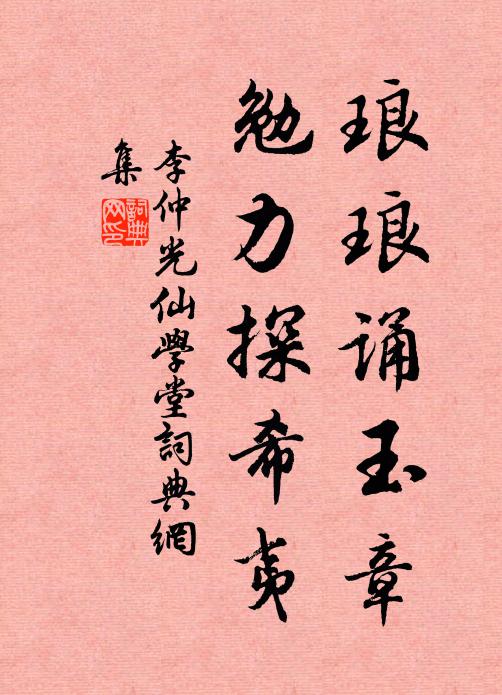 琅琅诵玉章
勉力探希夷
李仲光仙學堂詞典網
集
詞典
网印